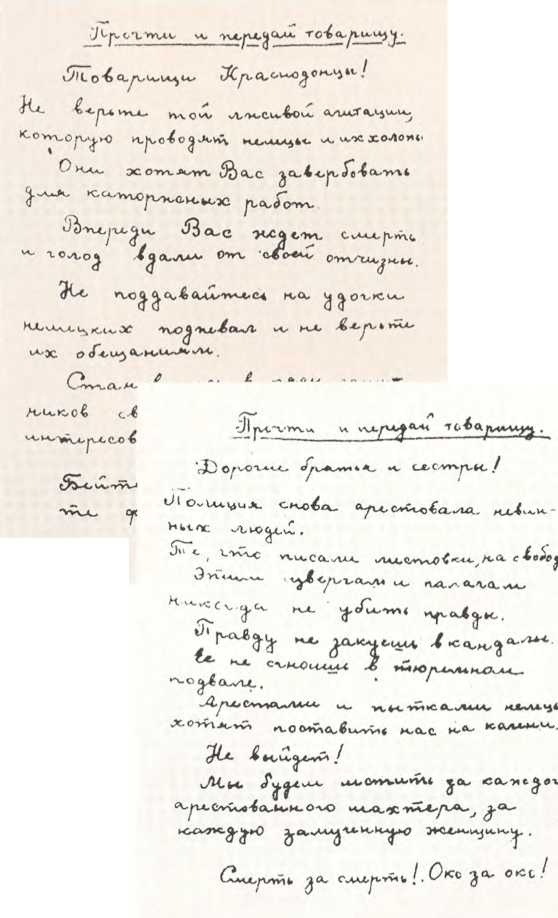 Прочти и передай товарищу.
Товарищи Краснодонцы!
Не верьте той лживой агитации,
которую проводят немцы и их холопы
Они хотят Вас завербовать
для каторжных работ.
Впереди Вас ждет смерть
и голод вдали от своей отчизны.
Не поддавайтесь на удочки
немецких подпевал и не верьте
их обещаниям.
ников
интересов
те
Прочти и передай товарищу.
Дорогие братья и сестры!
Полиция снова арестовала невин-
ных людей.
Те, что писали листовки, на свобод
Этим цвергам и палачам
никогда не убить правды.
Правду не закуешь в кандалы.
Ее не сгноишь в тюремном
подвале.
Арестами и пытками немцы
хотят поставить нас на колени.
Не выйдет!
Мы будем мстить за каждог
арестованного шахтера, за
каждую замученную женщину.
Смерть за смерть! Око за око!